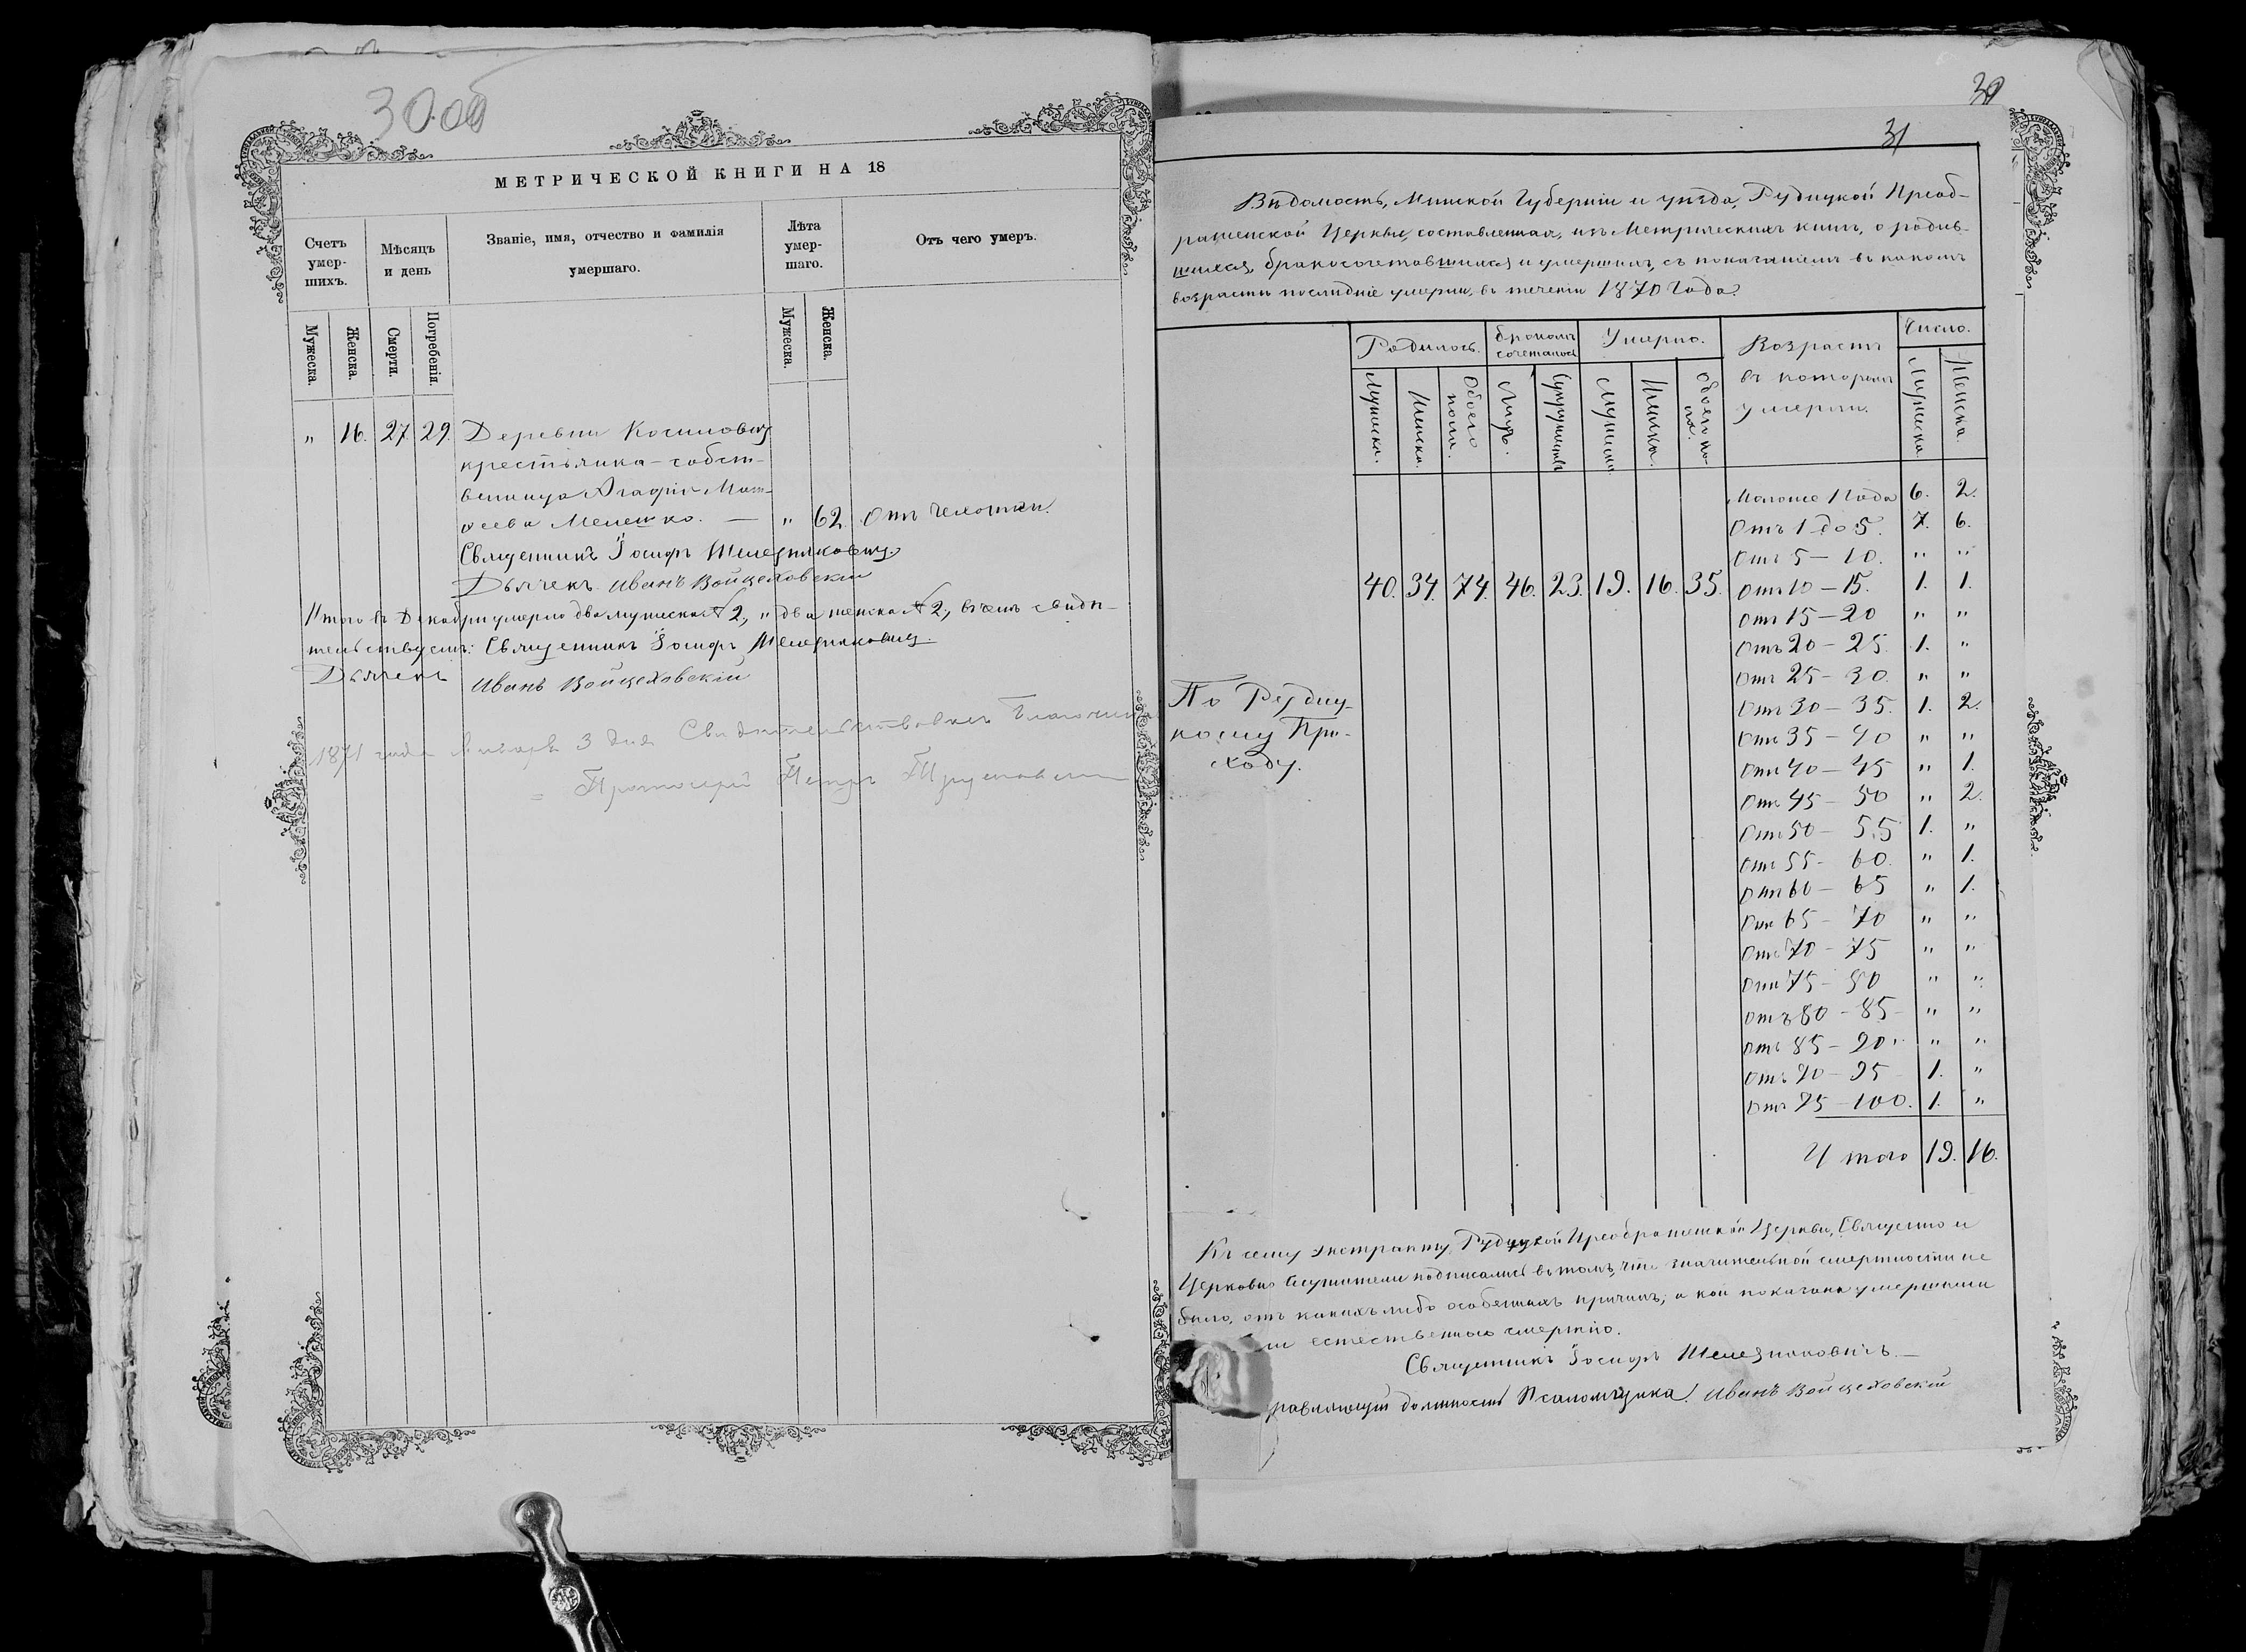 30 об
МЕТРИЧЕСКОЙ КНИГИ НА 18
Счетъ умер-шихъ.
Мѣсяцъ и день
Званіе, имя, отчество и фамилія умершаго.
Лѣта умер-шаго.
Отъ чего умеръ.
Мужеска.
Женска.
Смерти.
Погребенія.
Мужеска.
Женска.
" 16. 27. 29. Деревни
крестьянка-собст-
венница Агафія Мат-
ѳеева Мелешко. — " 62. Отъ чахотки.
Священникъ Іосифъ Шелезняковичъ
Дьячекъ Иванъ Войцеховскій
Итого въ Декабрѣ умерло два мужеска № 2, " два женска № 2, въ чемъ свидѣ-
тельствуемъ: Священникъ Іосифъ Шелезняковичъ.
Дьячекъ Иванъ Войцеховскій
1871 года Января 3 дня Свидѣтельствовалъ Благочинный
Протоіерей Петръ
30
31
Вѣдомость, Минской Губерніи и уѣзда, Рудицкой Преоб-
раженской Церкви, составленная, изъ Метрическихъ книгъ, о родив-
шихся, бракосочетавшихся и умершихъ, съ показаніемъ въ какомъ
возрастѣ послѣдніе умерли, въ теченіи 1870 Года.
Родилось.
Бракомъ сочеталось
Умерло.
Возрастъ
въ которомъ
умерли.
Число.
Мужеска.
Женска.
Обоего пола.
Лицъ.
Супружествъ
Мужеска.
Женска.
Обоего по-ла.
Мужеска.
Женска.
Моложе 1 года 6. 2.
Отъ 1 до 5. 7. 6.
Отъ 5 – 10. " "
40. 34. 74. 46. 23. 19. 16. 35. Отъ 10 – 15. 1. 1.
Отъ 15 – 20 " "
Отъ 20 – 25. 1. "
Отъ 25 – 30. " "
По Рудиц-
кому При-
ходу.
Отъ 30 – 35. 1. 2.
Отъ 35 – 40 " "
Отъ 40 – 45 " 1.
Отъ 45 – 50 " 2.
Отъ 50 – 55 1. "
Отъ 55 – 60. " 1.
Отъ 60 – 65 " 1.
Отъ 65 – 70 " "
Отъ 70 – 75 " "
Отъ 75 – 80 " "
Отъ 80 – 85 – " "
Отъ 85 – 90 " "
Отъ 90 – 95 1. "
Отъ 95 – 100. 1. "
Итого 19. 16.
Къ сему экстракту, Рудицкой Преображенской Церкви, Священно и
Церковно служители подписались въ томъ, что значительной смертности не
было, отъ какихъ либо особенныхъ причинъ; а кои показаны умершими
ли естественною смертію.
Священникъ Іосифъ Шелезняковичъ. —
равляющій должность Псаломщика. Иванъ Войцеховскій